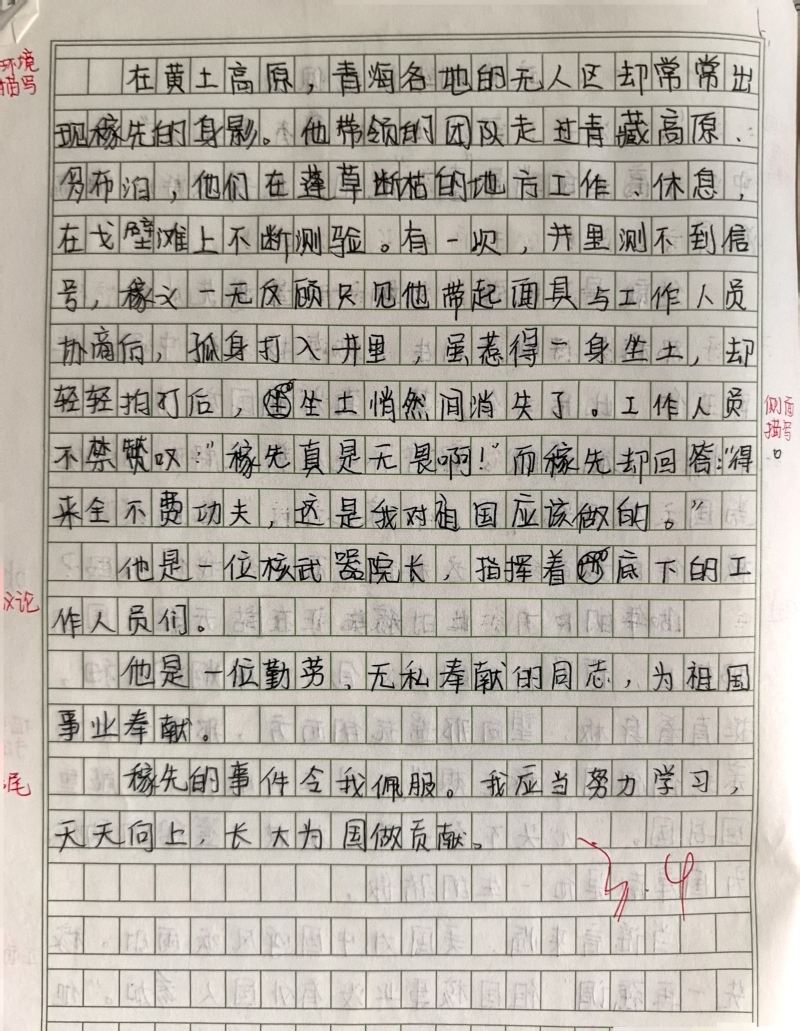 环境
描写
在黄土高原，青海各地的无人区却常常出
现稼先的身影。他带领的团队走过青藏高原、
多布泊，他们在蓬草断枯的地方工作、休息，
在戈壁滩上不断测验。有一次，井里测不到信
号，稼义一无反顾只见他带起面具与工作人员
协商后，孤身打入井里，虽惹得一身坐土，却
轻轻拍打后，坐土悄然间消失了。工作人员
侧面
描写。
不禁赞叹："稼先真是无畏啊！"而稼先却回答："得
来全不费功夫，这是我对祖国应该做的。"
他是一位核武器院长，指挥着底下的工
议论
作人员们。
他是一位勤劳、无私奉献的同志，为祖国
事业奉献。
尾
稼先的事件令我佩服。我应当努力学习，
天天向上，长大为国做贡献。